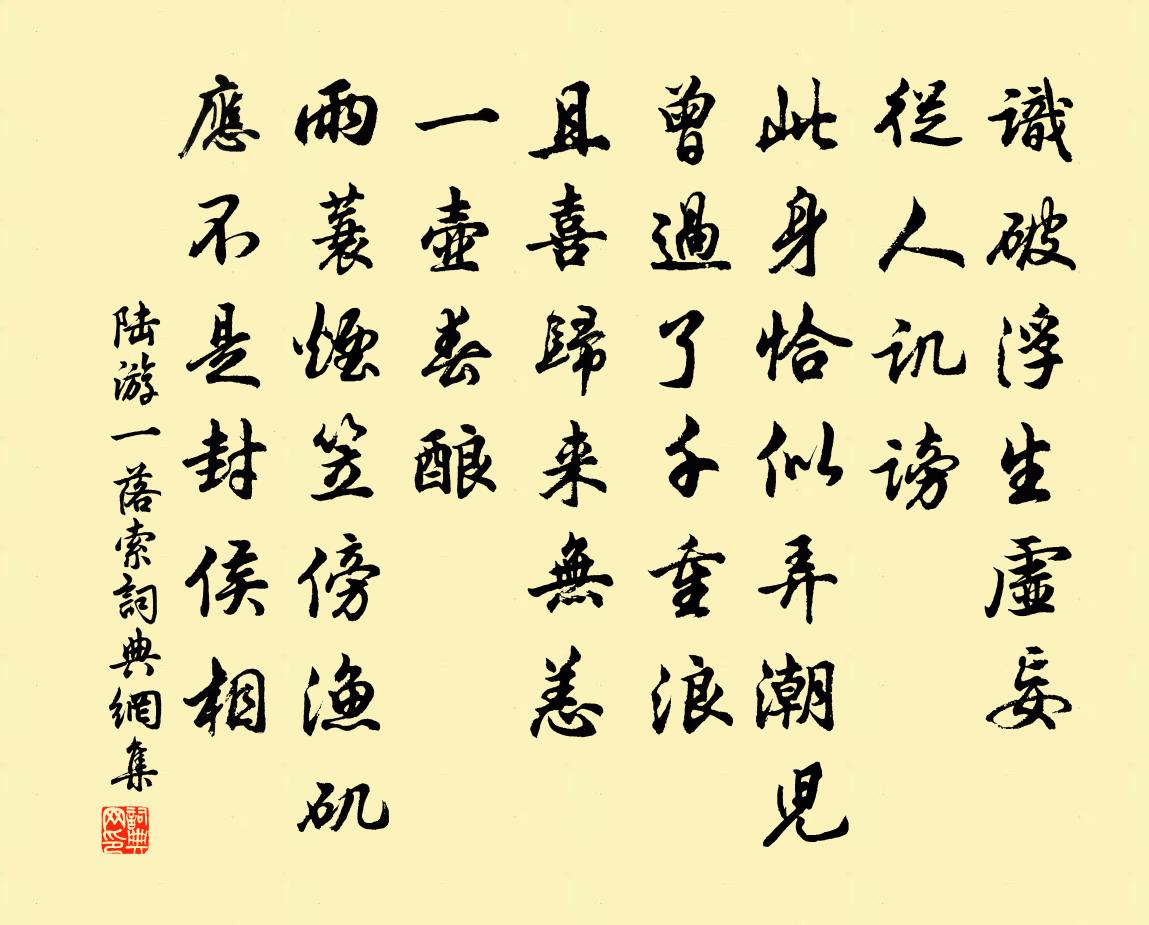 識破浮生虛妄
從人訕謗
此身恰似弄潮兒
曾過了千重浪
且喜歸来無恙
一壺春酿
雨蓑煙笠傍漁矶
應不是封侯相
陆游一落索詞典網集
詞典网印